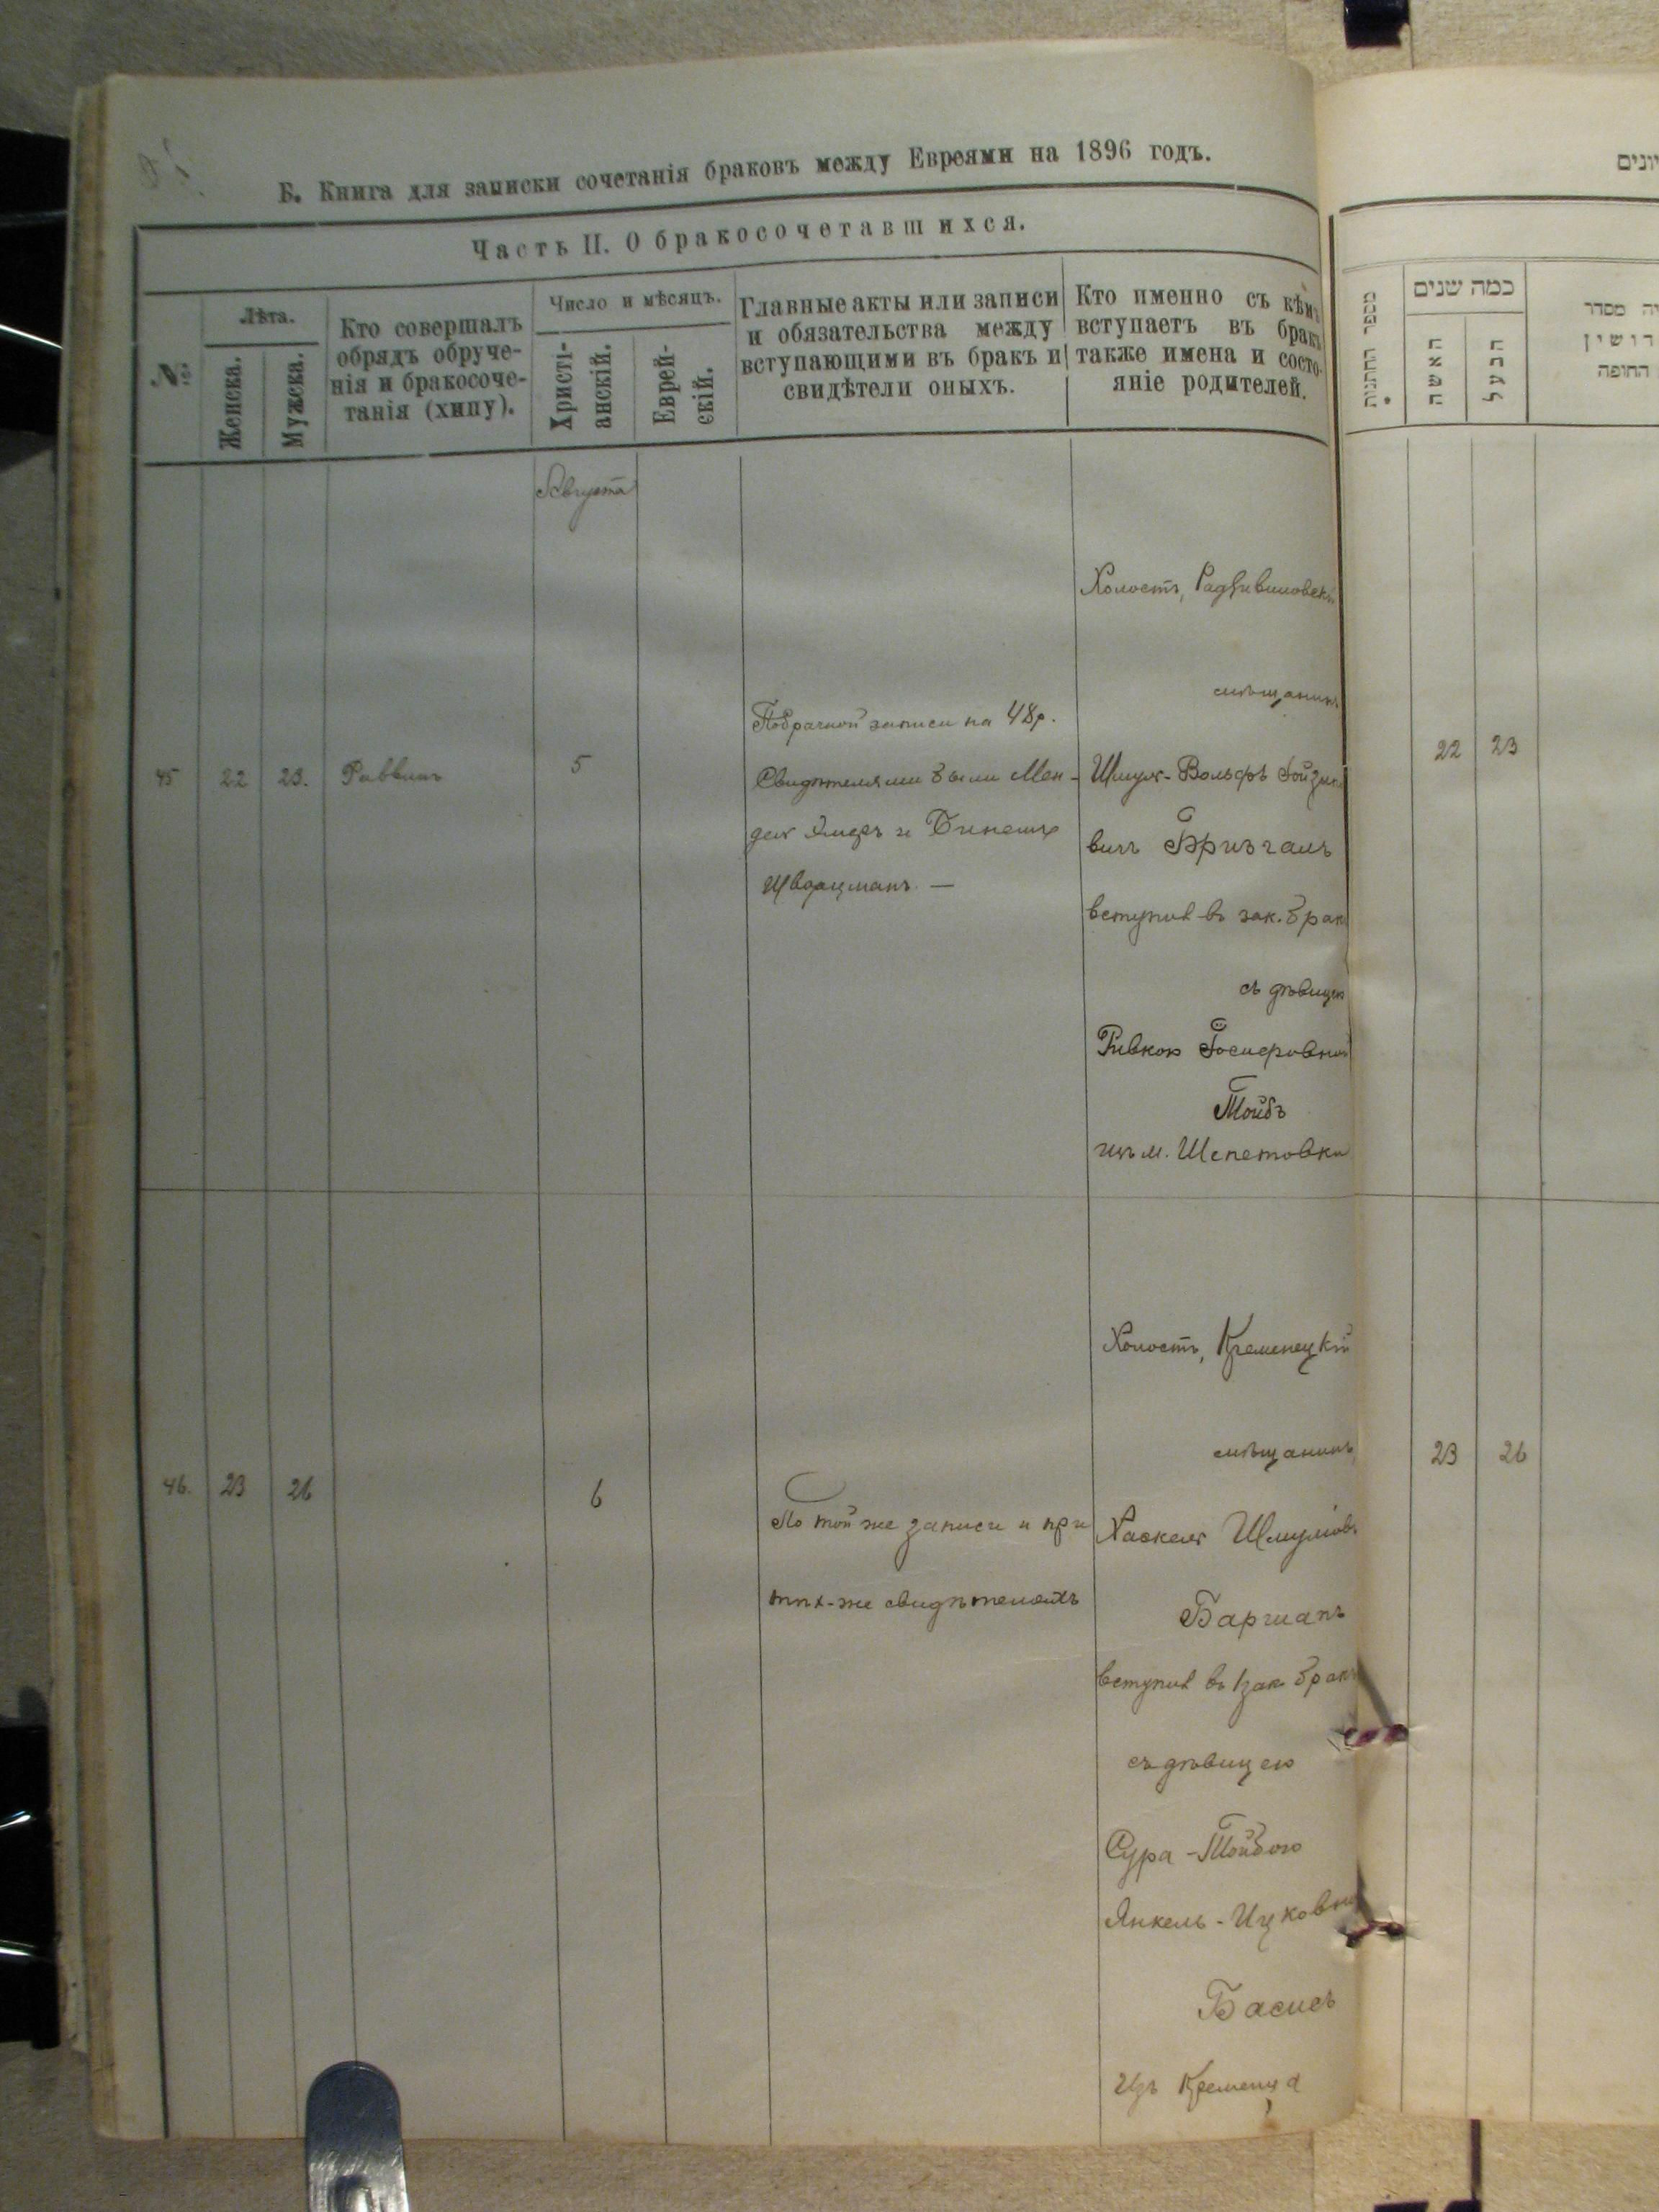 Б. Книга для записки сочетанія браковъ между Евреями на 1896 годъ.
Часть II. О бракосочетавшихся.
№
Лѣта.
Женска.
Мужска.
Кто совершалъ
обрядъ обруче-
нія и бракосоче-
танія (хипу).
Число и мѣсяцъ.
Христі-
анскій.
Еврей-
скій.
Главные акты или записи
и обязательства между
вступающими въ бракъ и
свидѣтели оныхъ.
Кто именно съ кѣмъ
вступаетъ въ бракъ
также имена и состо-
яніе родителей.
Августа
45
22
23.
Раввинъ
5
Побрачной записи на 48 р.
Свидѣтелями были Мен-
дель и
Шварцманъ. —
Холостъ, Радзивиловскій
мѣщанинъ
Шмуль-Вольфъ
вичъ
вступилъ въ зак. бракъ
съ дѣвицею
Ривкою Іосифовной
Тойбъ
изъ м. Шепетовки
46.
23
26
6
По той же записи и при
тѣх-же свидѣтеляхъ
Холостъ, Кременецкій
мѣщанинъ
Хаскель Шмулов.
вступилъ въ 1 зак. бракъ
съ дѣвицею
Сура-Тойбою
Янкель-Ицковной
Басисъ
Изъ Кременца
יונים
מספר החתונות
כמה שנים
האשה
הבעל
יה מסדר
דושין
החופה
22
23
23
26